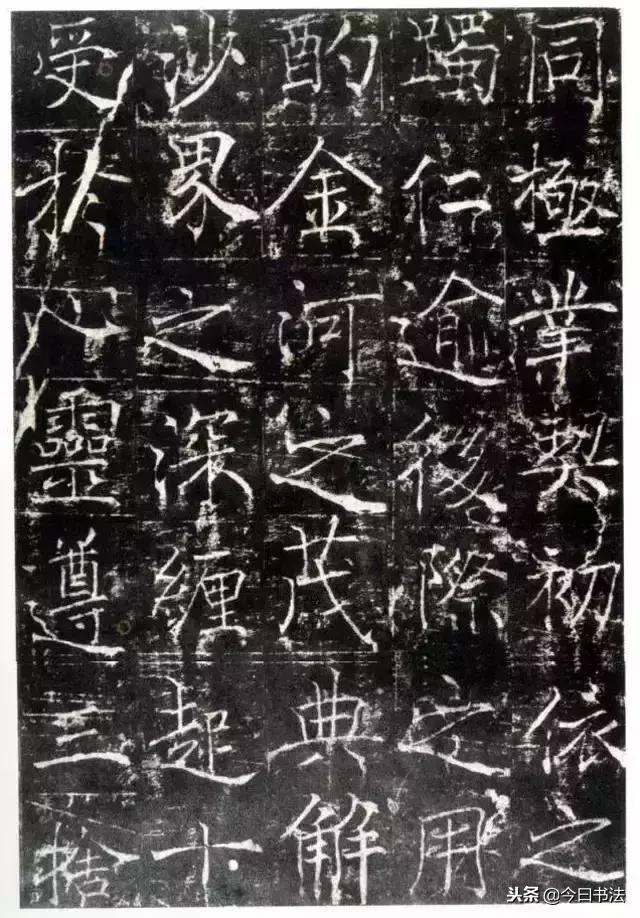 同極業契初依之
躅仁逾後際之用
酌金河之茂典解
沙界之深纏起十
受於心靈遵三捨
头条 @今日书法